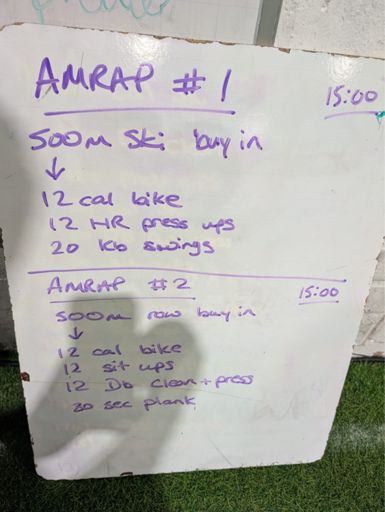 AMRAP #1
15:00
500m Ski buy in
↓
12 cal bike
12 HR press ups
20 KB swings
AMRAP #2
15:00
500m row buy in
↓
12 cal bike
12 sit ups
12 Db clean + press
30 sec plank